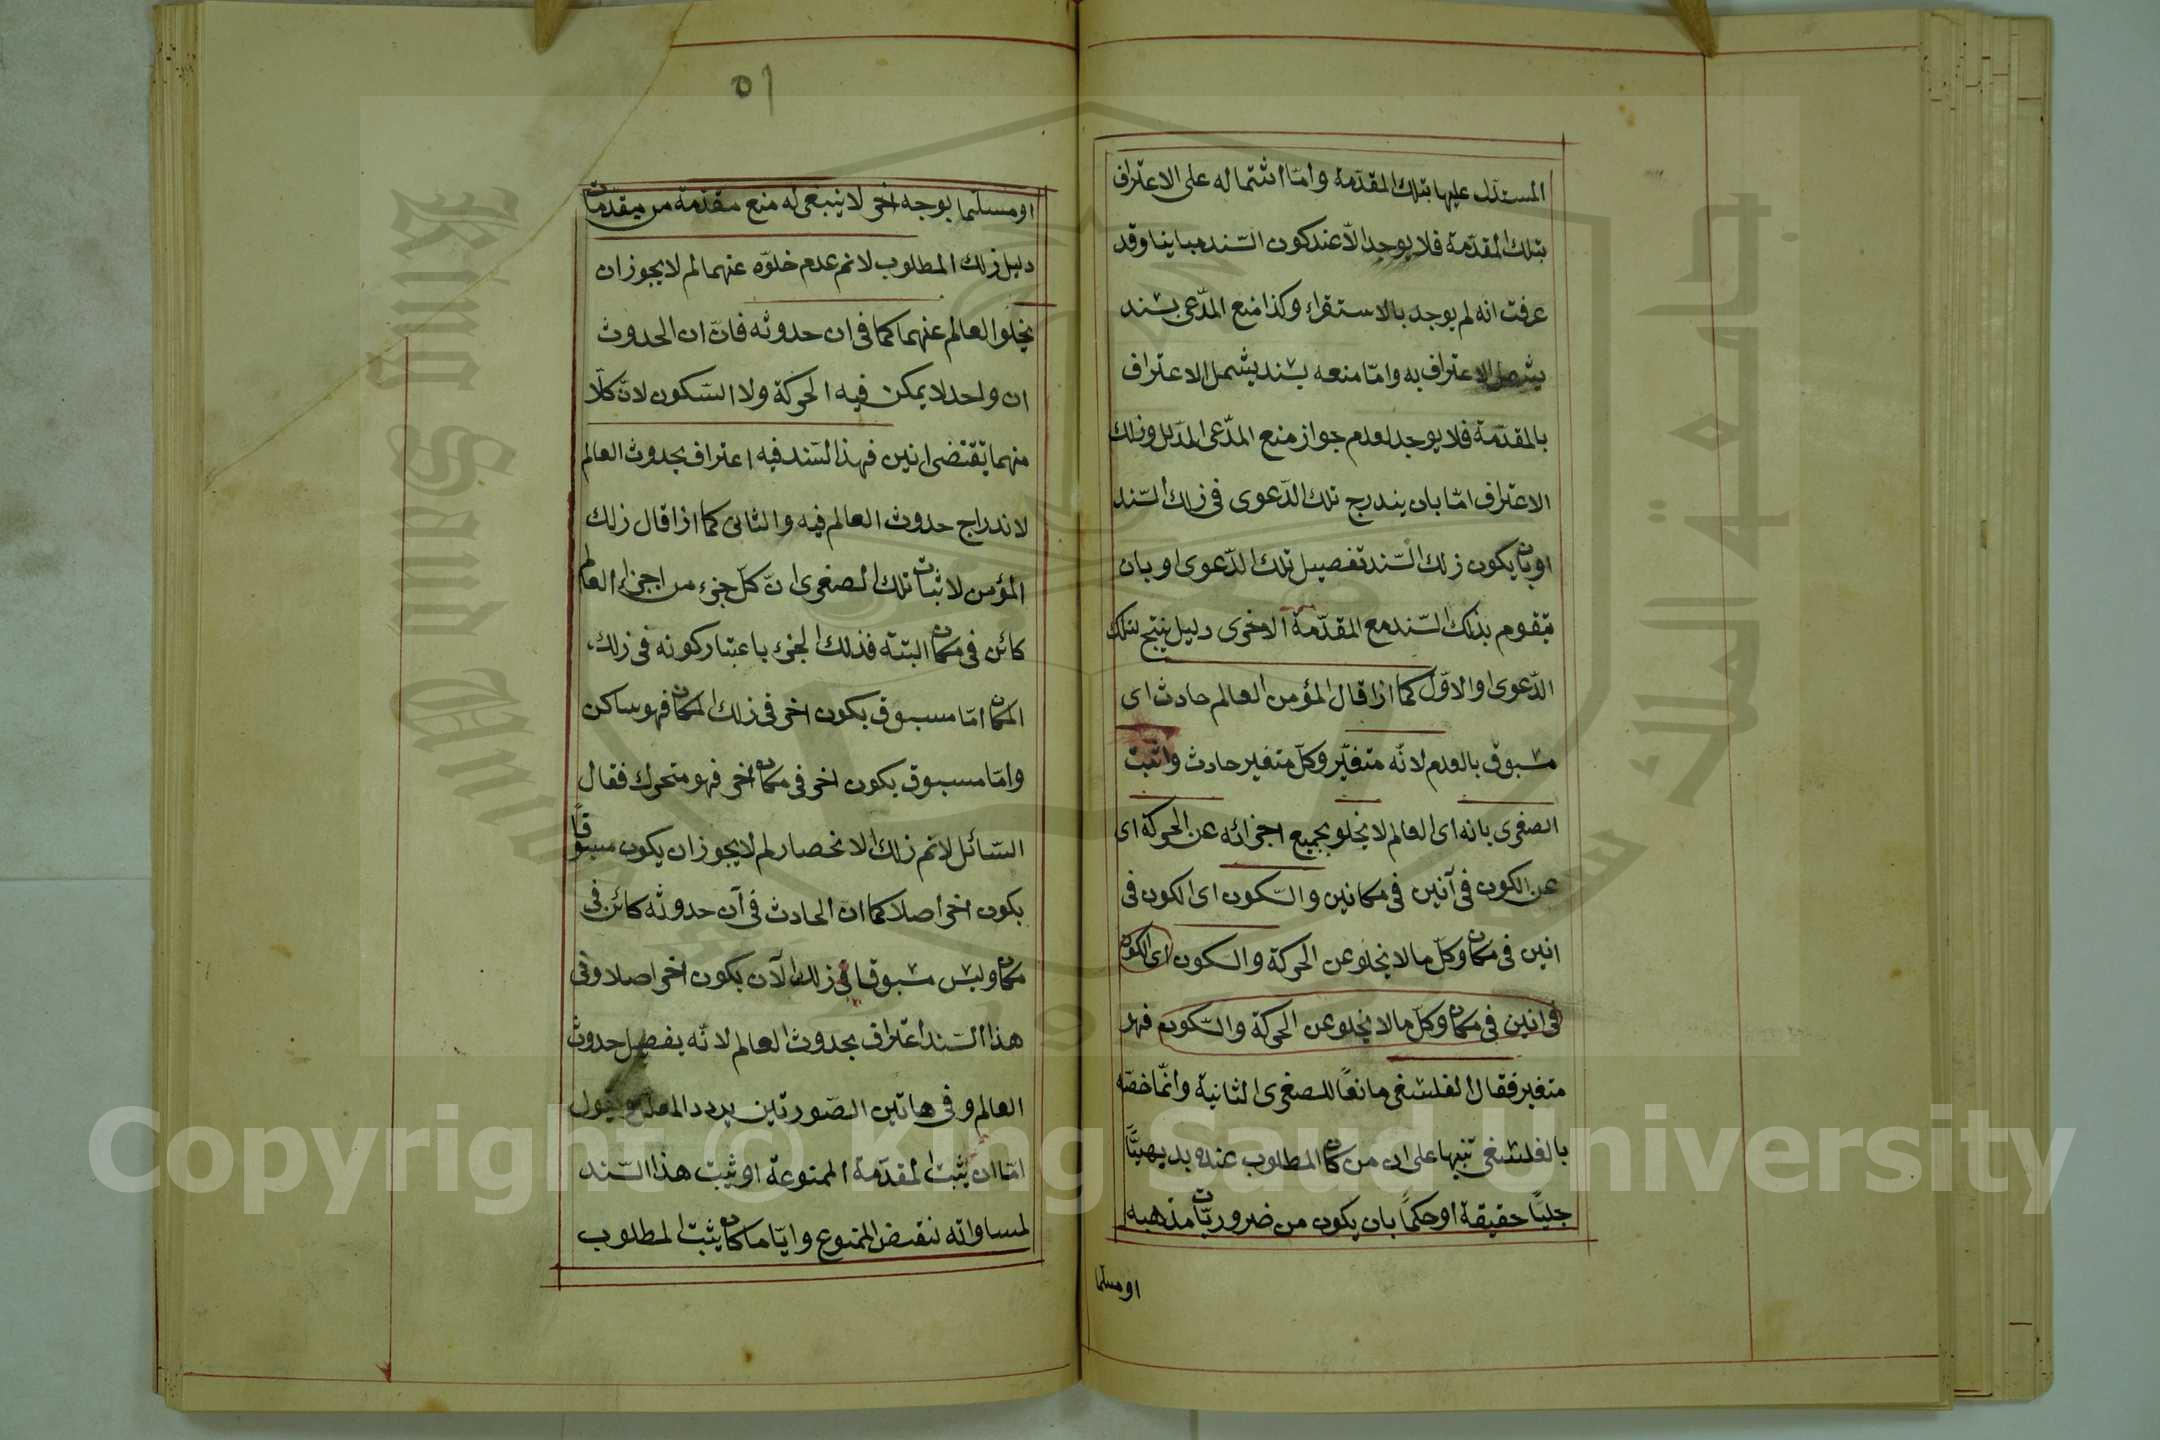 المستدل عليها بتلك المقدمة وامّا اشتماله على الاعتراف
بتلك المقدّمة فلا يوجد الّا عند كون السّند مباينا وقد
عرفت انه لم يوجد بالاستقراء وكذا منع المدّعى بسند
يشمل الاعتراف به وامّا منعه بسند يشمل الاعتراف
بالمقدّمة فلا يوجد لعدم جواز منع المدّعى المدلل وذلك
الاعتراف امّا بان يندرج تلك الدّعوى فى ذلك السّند
او بان يكون ذلك السّند تفصيل تلك الدّعوى او بان
يتقوم بذلك السّند مع المقدّمة الاخرى دليل ينتج لتلك
الدّعوى والاوّل كما اذا قال المؤمن العالم حادث اى
مسبوق بالعدم لانّه متغيّر وكلّ متغير حادث واثبت
الصغرى بانه اى العالم لا يخلو بجميع اجزائه عن الحركة اى
عن الكون فى آنين فى مكانين والسّكون اى الكون فى
انين فى مكان وكلّ ما لا يخلو عن الحركة والسّكون اى الكون
فى انين فى مكان وكلّ ما لا يخلو عن الحركة والسّكون فهو
متغير فقال الفلسفى مانعًا للصغرى الثانية وانّما خصّه
بالفلسفى تنبيها على ان من كان المطلوب عنده بديهيًّا
جليًّا حقيقة او حكمًا بان يكون من ضروريّات مذهبه
او مسلما
٥١
او مسلّما بوجه اخر لا ينبغى له منع مقدّمة من مقدّمات
دليل ذلك المطلوب لا نم عدم خلوّه عنهما لم لا يجوز ان
يخلو العالم عنهما كما فى ان حدوثه فانّ ان الحدوث
ان واحد لا يمكن فيه الحركة ولا السّكون لانّ كلّا
منهما يقتضى انين فهذا السّند فيه اعتراف بحدوث العالم
لاندراج حدوث العالم فيه والثانى كما اذا قال ذلك
المؤمن لاثبات تلك الصغرى انّ كلّ جزء من اجزاء العالم
كائن فى مكان البتة فذلك الجزء باعتبار كونه فى ذلك
المكان امّا مسبوق بكون اخر فى ذلك المكان فهو ساكن
وامّا مسبوق بكون اخر فى مكان اخر فهو متحرك فقال
السّائل لا نم ذلك الانحصار لم لا يجوز ان يكون مسبوقًا
بكون اخر اصلا كما ان الحادث فى آن حدوثه كائن فى
مكان وليس مسبوقا فى ذلك الآن بكون اخر اصلا وفى
هذا السّند اعتراف بحدوث العالم لانّه يفصل حدوث
العالم وفى هاتين الصّورتين يردد المعلل ويقول
امّا ان يثبت المقدّمة الممنوعة او يثبت هذا السّند
لمساواته نقيض الممنوع وايّاما كان يثبت المطلوب
Copyright © King Saud University
King Saud University